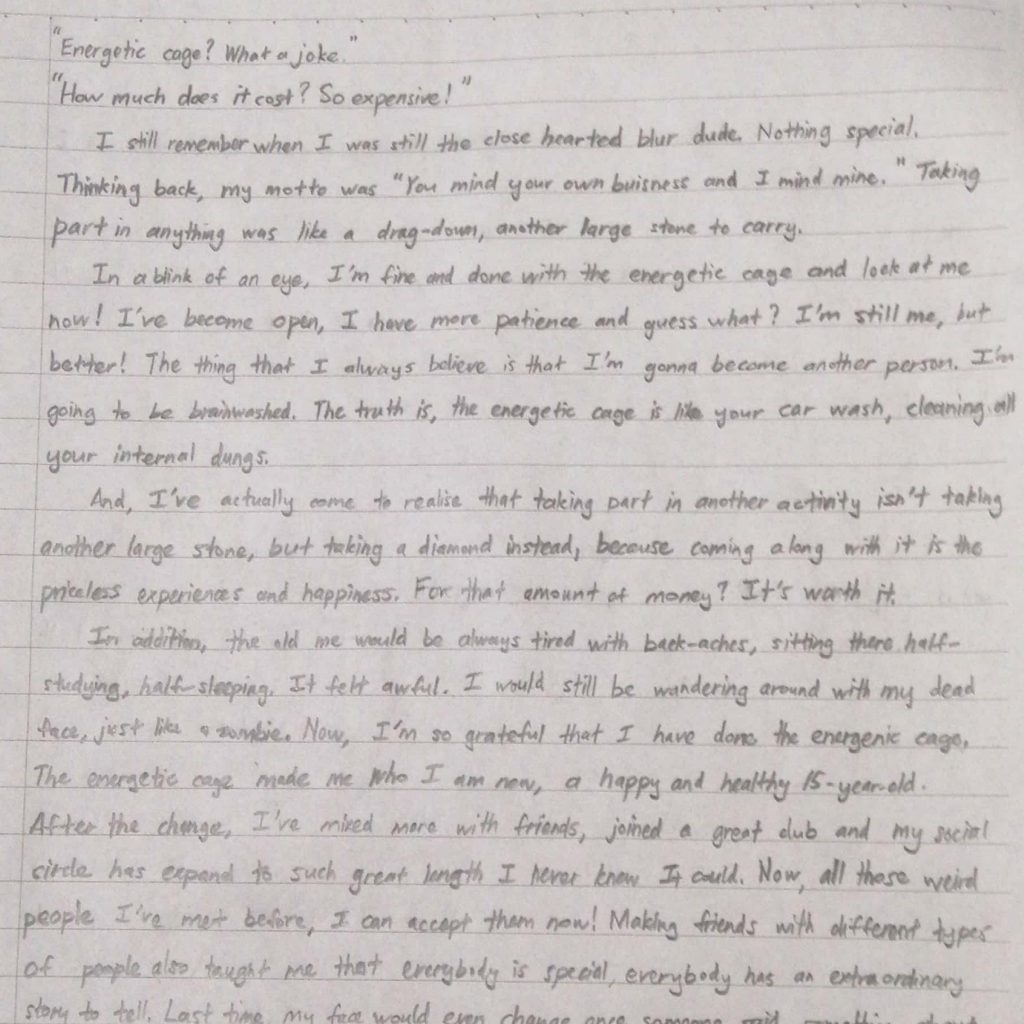 "Energetic cage? What a joke."
"How much does it cost? So expensive!"
I still remember when I was still the close hearted blur dude. Nothing special.
Thinking back, my motto was "You mind your own buisness and I mind mine." Taking
part in anything was like a drag-down, another large stone to carry.
In a blink of an eye, I'm fine and done with the energetic cage and look at me
now! I've become open, I have more patience and guess what? I'm still me, but
better! The thing that I always believe is that I'm gonna become another person. I'm
going to be brainwashed. The truth is, the energetic cage is like your car wash, cleaning all
your internal dungs.
And, I've actually come to realise that taking part in another activity isn't taking
another large stone, but taking a diamond instead, because coming along with it is the
priceless experiences and happiness. For that amount of money? It's worth it.
In addition, the old me would be always tired with back-aches, sitting there half-
studying, half-sleeping. It felt awful. I would still be wandering around with my dead
face, just like a zombie. Now, I'm so grateful that I have done the energenic cage.
The energetic cage made me who I am now, a happy and healthy 15-year-old.
After the change, I've mixed more with friends, joined a great club and my social
circle has expand to such great length I never knew It could. Now, all those weird
people I've met before, I can accept them now! Making friends with different types
of people also taught me that everybody is special, everybody has an extraordinary
story to tell. Last time, my face would even change once someone said something about